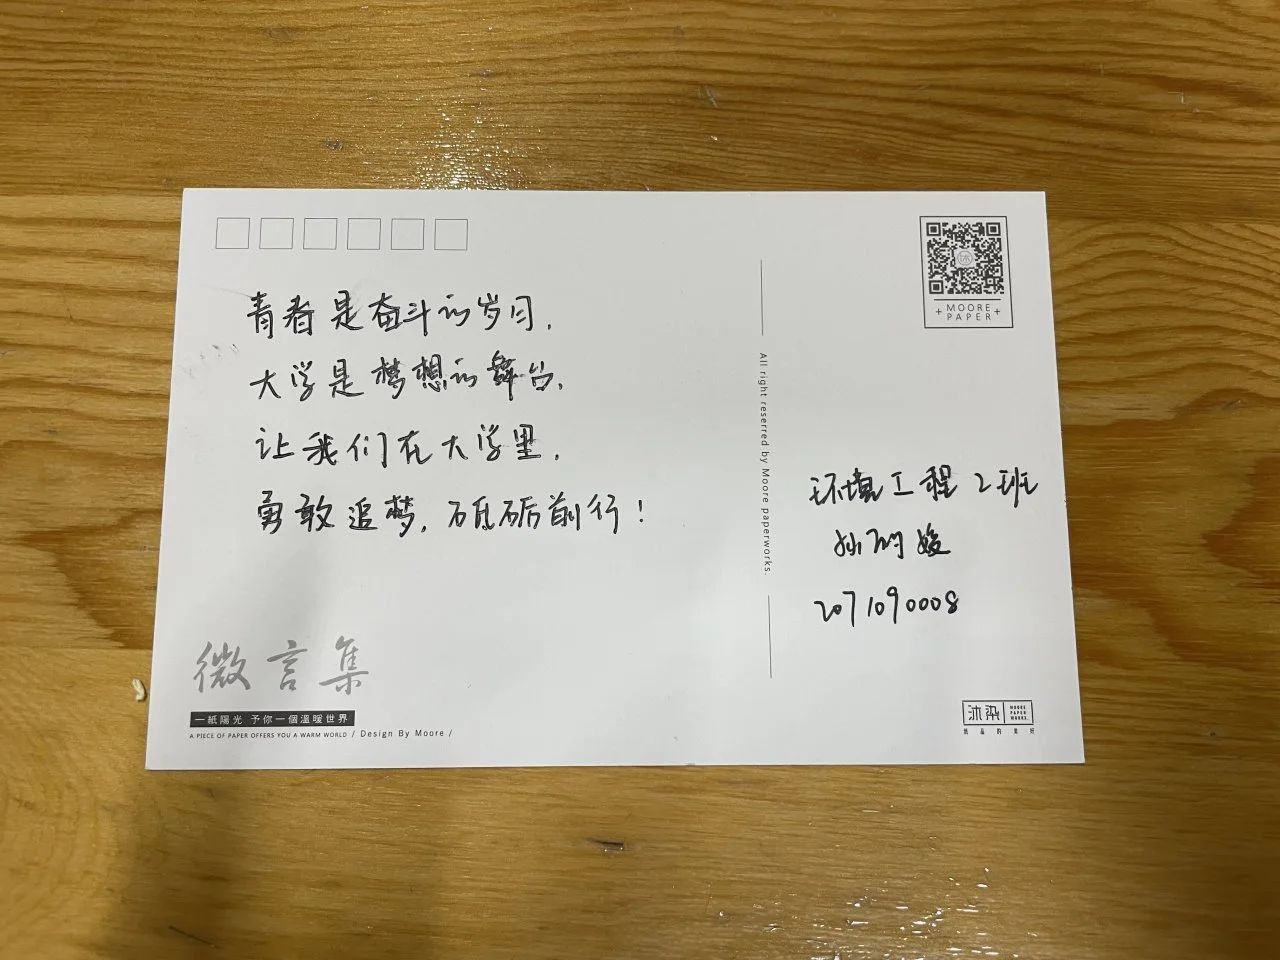 青春是奋斗的岁月,
大学是梦想的舞台,
让我们在大学里,
勇敢追梦,砥砺前行!
环境工程2班
孙雨媛
2071090008
+ MOORE +
PAPER
All right reserred by Moore paperworks.
微言集
一紙陽光 予你一個溫暖世界
A PIECE OF PAPER OFFERS YOU A WARM WORLD / Design By Moore /
沐染
MOORE
PAPER
WORKS.
紙品的美好